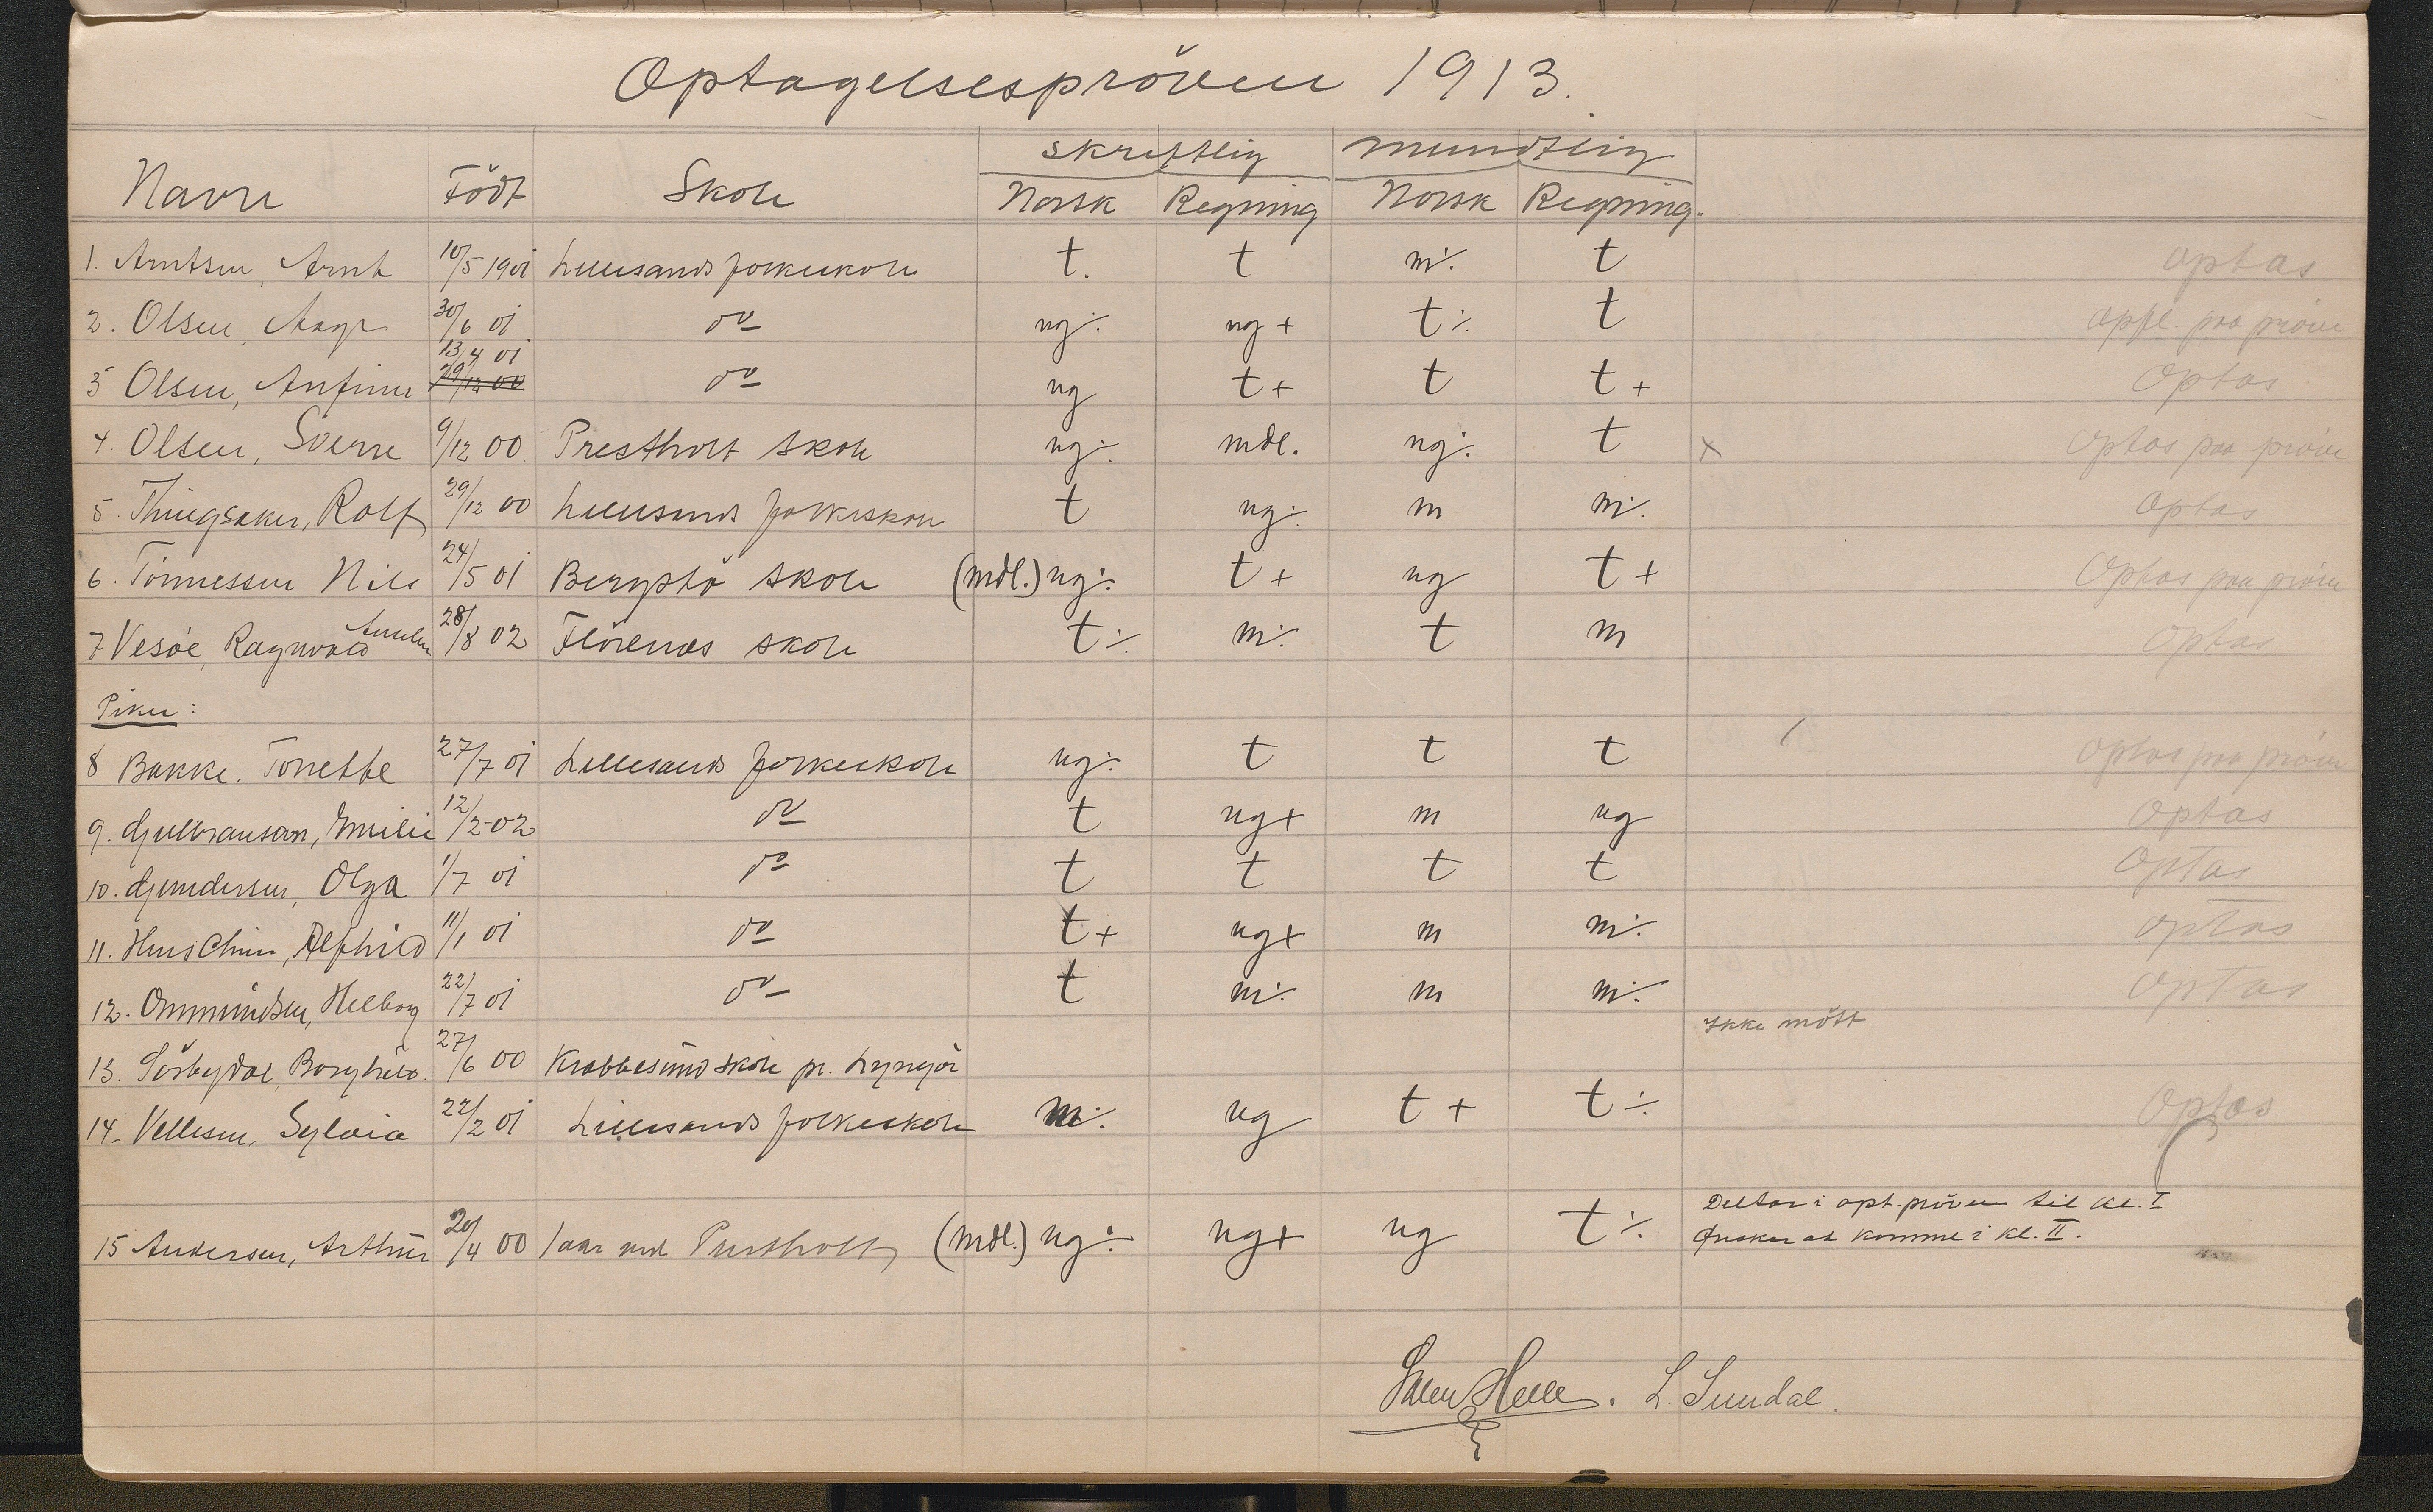 Optagelsespröven 1913.
skriftlig mundtlig
Navn Födt Skole Norsk Regning Norsk Regning.
1. Arntsen, Arnt 10/5 1901 Lillesands folkeskole t. t m÷ t optas
2. Olsen, Aage 30/6 01 do ng÷ ng+ t÷ t opfl. paa pröve
13/4 01
3 Olsen, Anfinn 29/12 00 do ng t+ t t+ Optas
4. Olsen, Sverre 9/12 00 Prestholt skole ng÷ mdl. ng÷ t x Optas paa pröve
5. Thingsaker, Rolf 29/12 00 Lillesands folkeskole t ng÷ m m÷ Optas
6. Tönnessen Nils 24/5 01 Bergstö skole (mdl.) ng÷ t+ ng t+ Optas paa pröve
7 Vesöe, Ragnvald 28/8 02 Flörenes skole t÷ m÷ t m Optas
Piker:
8 Bakke. Tonette 27/7 01 Lillesands folkeskole ng÷ t t t Optas paa pröve
9. Gulbransen, Emilie 12/2-02 do t ng+ m ng Optas
10. Gundersen, Olga 1/7 01 do t t t t Optas
11. Alfhild 11/1 01 do t+ ng+ m m÷ optas
12. Ommundsen, Helborg 22/7 01 do t m÷ m m÷ Optas
Ikke mött
13. Sörbydal, Borghild. 27/6 00 Krabbesund skole pr. Lyngör
14. Vellesen, Sylvia 22/2 01 Lillesands folkeskole m÷ ng t+ t÷ Optas
Deltar i opt.pröven til kl. I
15 Andersen, Arthur 20/4 00 1 aar ved Prestholt (mdl.) ng÷ ng+ ng t÷ Ønsker at komme i kl. II.
Helle. L. Sundal.